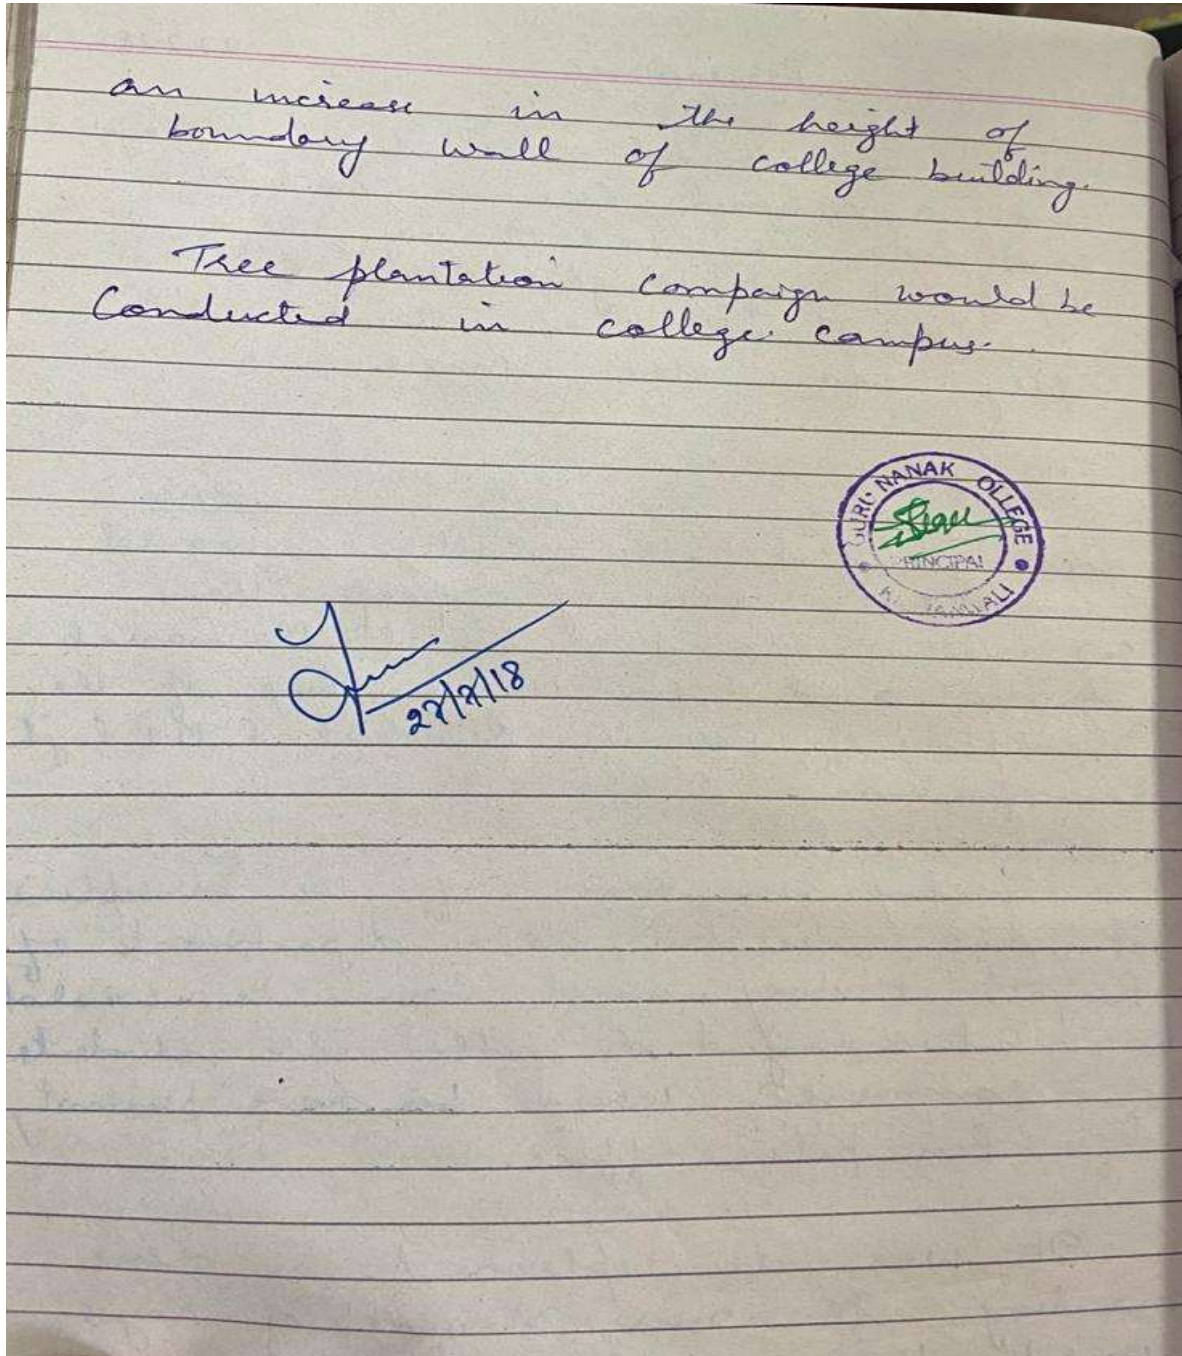 an increase in the height of
boundary wall of college building.
Tree plantation campaign would be
Conducted in college campus.
GURU NANAK OLLEGE
PRINCIPAL
27/7/18